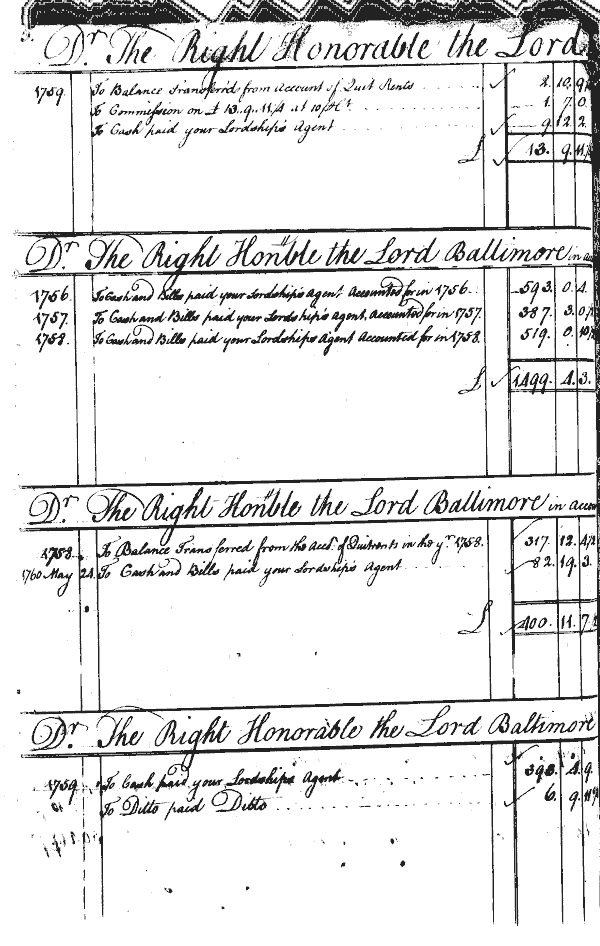 Dr. The Right Honorable the Lord
1759 To Balance Transferr'd from Account of Quit Rents 2. 10. 9
To Commission on £ 13..9..11¼ at 10 pCt. 1. 7. 0
To Cash paid your Lordship's Agent 9. 12. 2
£ 13. 9. 11¼
Dr. The Right Hon'ble the Lord Baltimore in
1756. To Cash and Bills paid your Lordship's Agent Accounted for in 1756. 593. 0. 4.
1757. To Cash and Bills paid your Lordship's Agent. Accounted for in 1757. 387. 3. 0
1758. To Cash and Bills paid your Lordship's Agent Accounted for in 1758. 519. 0. 10
£ 1499. 4. 3.
Dr. The Right Hon'ble the Lord Baltimore in
1758. To Balance Transferred from the Acct. of Quitrents in the yr. 1758. 317. 12. 4½
1760 May 24 To Cash and Bills paid your Lordship's Agent 82. 19. 3.
£ 400. 11. 7½
Dr. The Right Honorable the Lord Baltimore
1759 To Cash paid your Lordship's Agent 393. 4. 9.
To Ditto paid Ditto 6. 9. 11